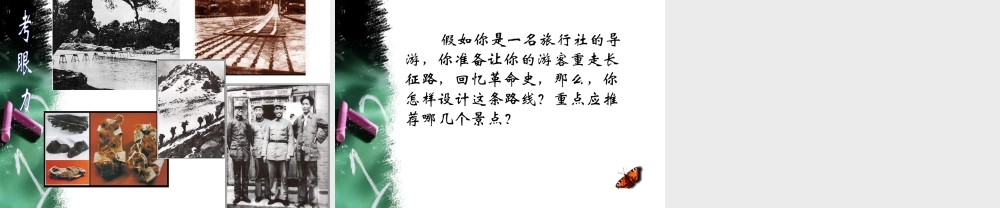 考眼力
假如你是一名旅行社的导
游，你准备让你的游客重走长
征路，回忆革命史，那么，你
怎样设计这条路线？重点应推
荐哪几个景点？